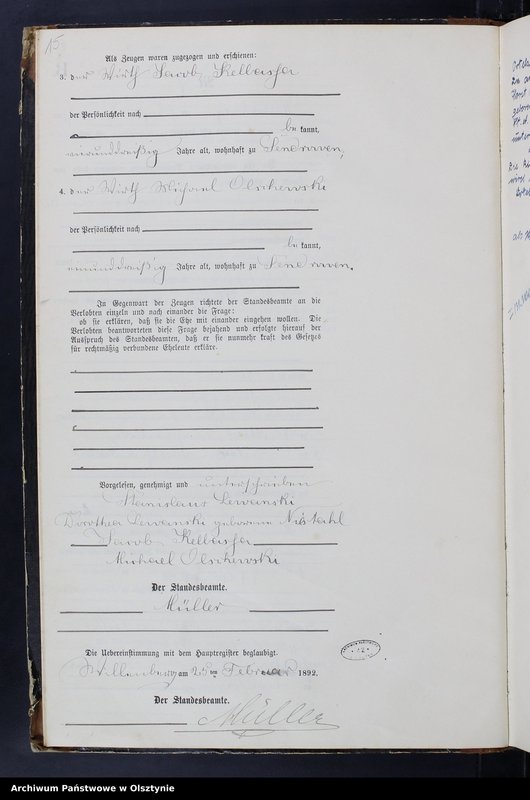 15
Als Zeugen waren zugezogen und erschienen:
3. der Wirth Jacob
der Persönlichkeit nach
be kannt,
vierunddreißig Jahre alt, wohnhaft zu
4. der Wirth Michael Olschewski
der Persönlichkeit nach
be kannt,
Jahre alt, wohnhaft zu
In Gegenwart der Zeugen richtete der Standesbeamte an die
Verlobten einzeln und nach einander die Frage:
ob sie erklären, daß sie die Ehe mit einander eingehen wollen. Die
Verlobten beantworteten diese Frage bejahend und erfolgte hierauf der
Ausspruch des Standesbeamten, daß er sie nunmehr kraft des Gesetzes
für rechtmäßig verbundene Eheleute erkläre.
Vorgelesen, genehmigt und unterschrieben
Stanislaus Lewanski
Dorothea Lewanski geborene
Jacob
Michael Olschewski
Der Standesbeamte.
Müller
Die Uebereinstimmung mit dem Hauptregister beglaubigt.
Willenberg am 25 ten Februar 1892.
Der Standesbeamte.
Müller
Archiwum Państwowe w Olsztynie